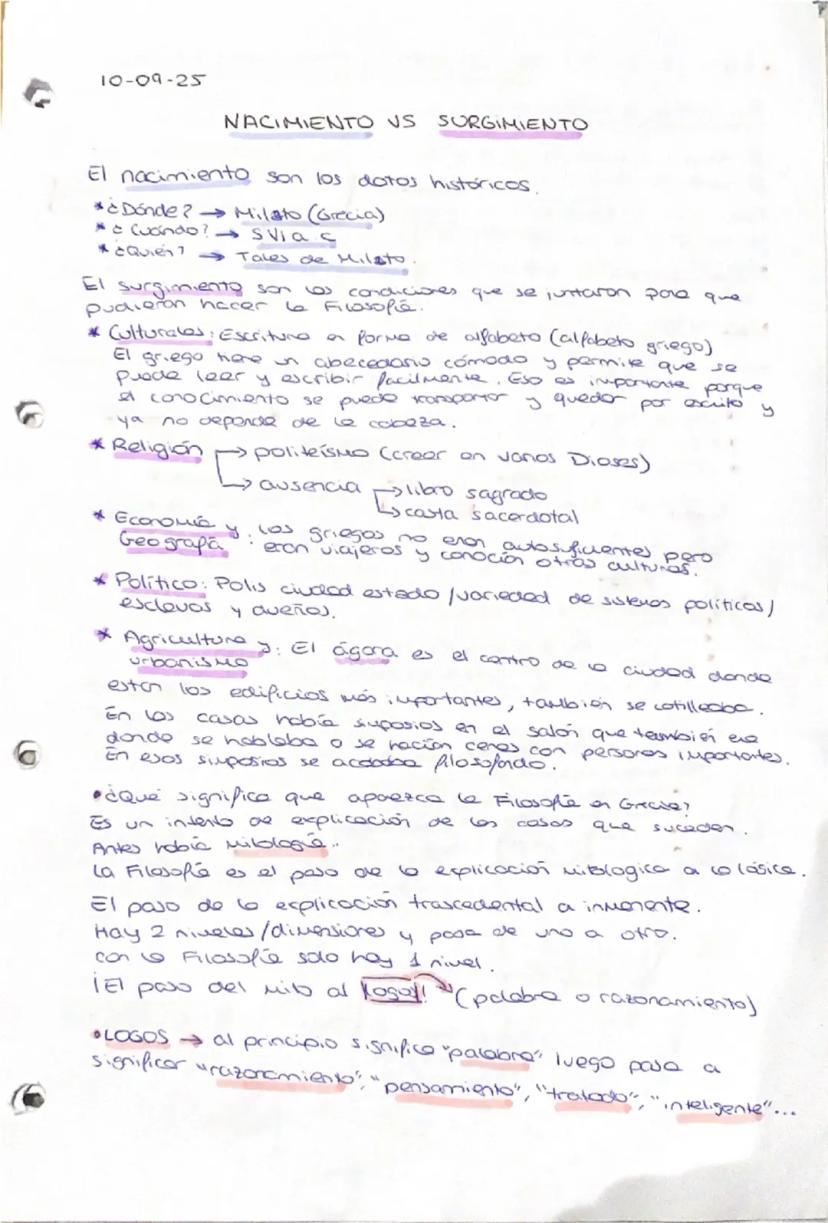 10-09-25
NACIMIENTO VS SURGIMIENTO
El nacimiento son los datos históricos.
*¿Dónde? → Mileto (Grecia)
*¿Cuándo? → S VI a c
*¿Quién? → Tales de Mileto.
El surgimiento son las condiciones que se juntaron para que
pudieran hacer la Filosofía.
* Culturales: Escritura en forma de alfabeto (alfabeto griego)
El griego tiene un abecedario cómodo y permite que se
puede leer y escribir facilmente. Eso es importante porque
el conocimiento se puede transportar y quedar por escrito y
ya no depende de la cabeza.
* Religión → politeísmo (creer en varios Dioses)
→ ausencia → libro sagrado
→ casta sacerdotal
* Economía y : los griegos no eran autosuficientes pero
Geografía eran viajeros y conocían otras culturas.
* Político: Polis ciudad estado /variedad de sistemas políticos/
esclavos y dueños.
* Agricultura y : El ágora es el centro de la ciudad donde
urbanismo
están los edificios más importantes, también se cotilleaba.
En las casas había simposios en el salón que también era
donde se hablaba o se hacían cenas con personas importantes.
En esos simposios se acababa filosofando.
•¿Qué significa que aparezca la Filosofía en Grecia?
Es un intento de explicación de las cosas que suceden.
Antes había mitología.
La Filosofía es el paso de la explicación mitologica a la lósica.
El paso de la explicación trascedental a inmanente.
Hay 2 niveles/dimensiones y pasa de uno a otro.
con la Filosofía solo hay 1 nivel.
¡El paso del mito al logos! (palabra o razonamiento)
•LOGOS → al principio significa "palabra" luego pasa a
significar "razonamiento", "pensamiento", "tratado", "inteligente"...